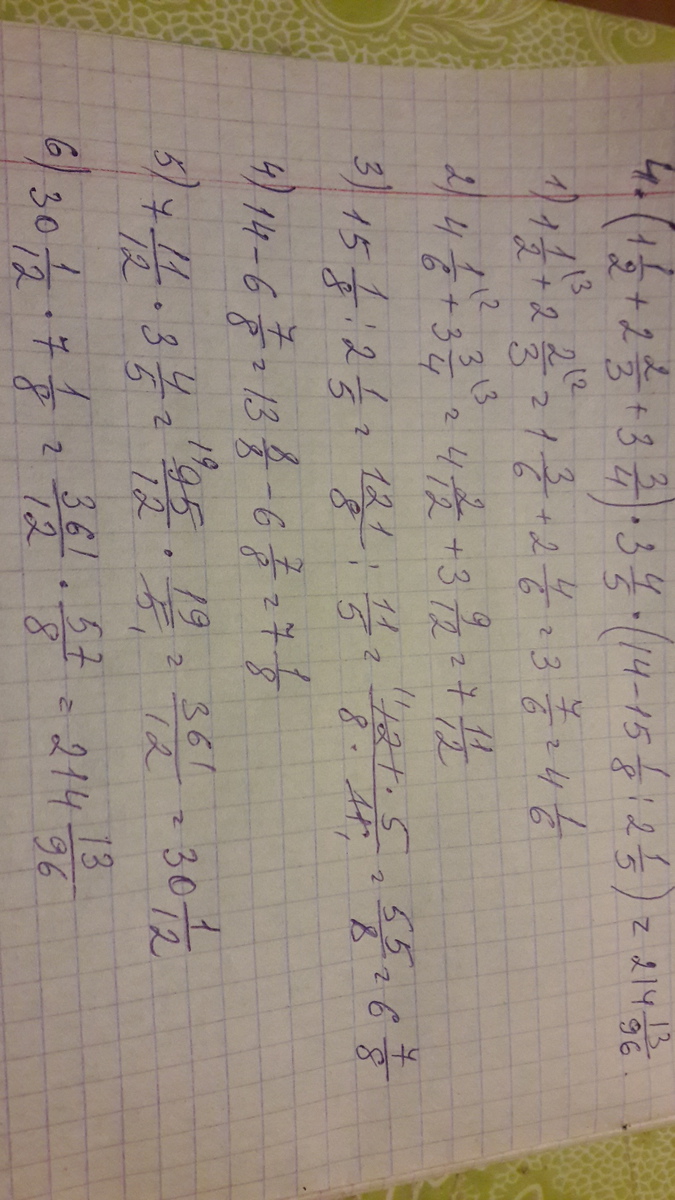 4. (1 1/2 + 2 2/3 + 3 3/4) · 3 4/5 · (14 - 15 1/8 : 2 1/5) = 214 13/96.
1) 1 1/2 \3 + 2 2/3 \2 = 1 3/6 + 2 4/6 = 3 7/6 = 4 1/6
2) 4 1/6 \2 + 3 3/4 \3 = 4 2/12 + 3 9/12 = 7 11/12
3) 15 1/8 : 2 1/5 = 121/8 : 11/5 = 11 121 · 5 / 8 · 11 1 = 55/8 = 6 7/8
4) 14 - 6 7/8 = 13 8/8 - 6 7/8 = 7 1/8
5) 7 11/12 · 3 4/5 = 19 95/12 · 19/5 1 = 361/12 = 30 1/12
6) 30 1/12 · 7 1/8 = 361/12 · 57/8 = 214 13/96